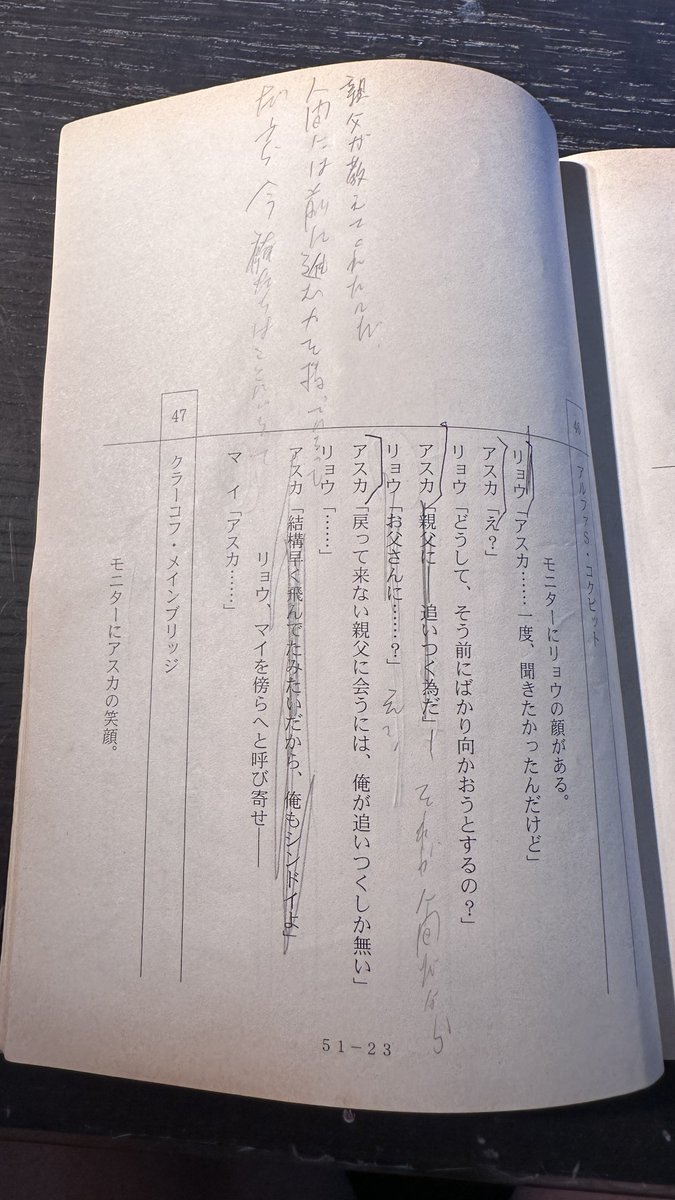 46 アルファS・コクピット
モニターにリョウの顔がある。
リョウ「アスカ……一度、聞きたかったんだけど」
アスカ「え?」
リョウ「どうして、そう前にばかり向かおうとするの?」
アスカ「親父に 追いつく為だ」
それが人間だから
リョウ「お父さんに……?」
え?
アスカ「戻って来ない親父に会うには、俺が追いつくしか無い」
リョウ「……」
アスカ「結構早く飛んでたみたいだから、俺もシンドイよ」
リョウ、マイを傍らへと呼び寄せ――
マイ「アスカ……」
47 クラーコフ・メインブリッジ
モニターにアスカの笑顔。
親父が教えてくれたんだ
人間には前に進む力を持ってるって
だから今俺たちはここにいるって
51-23